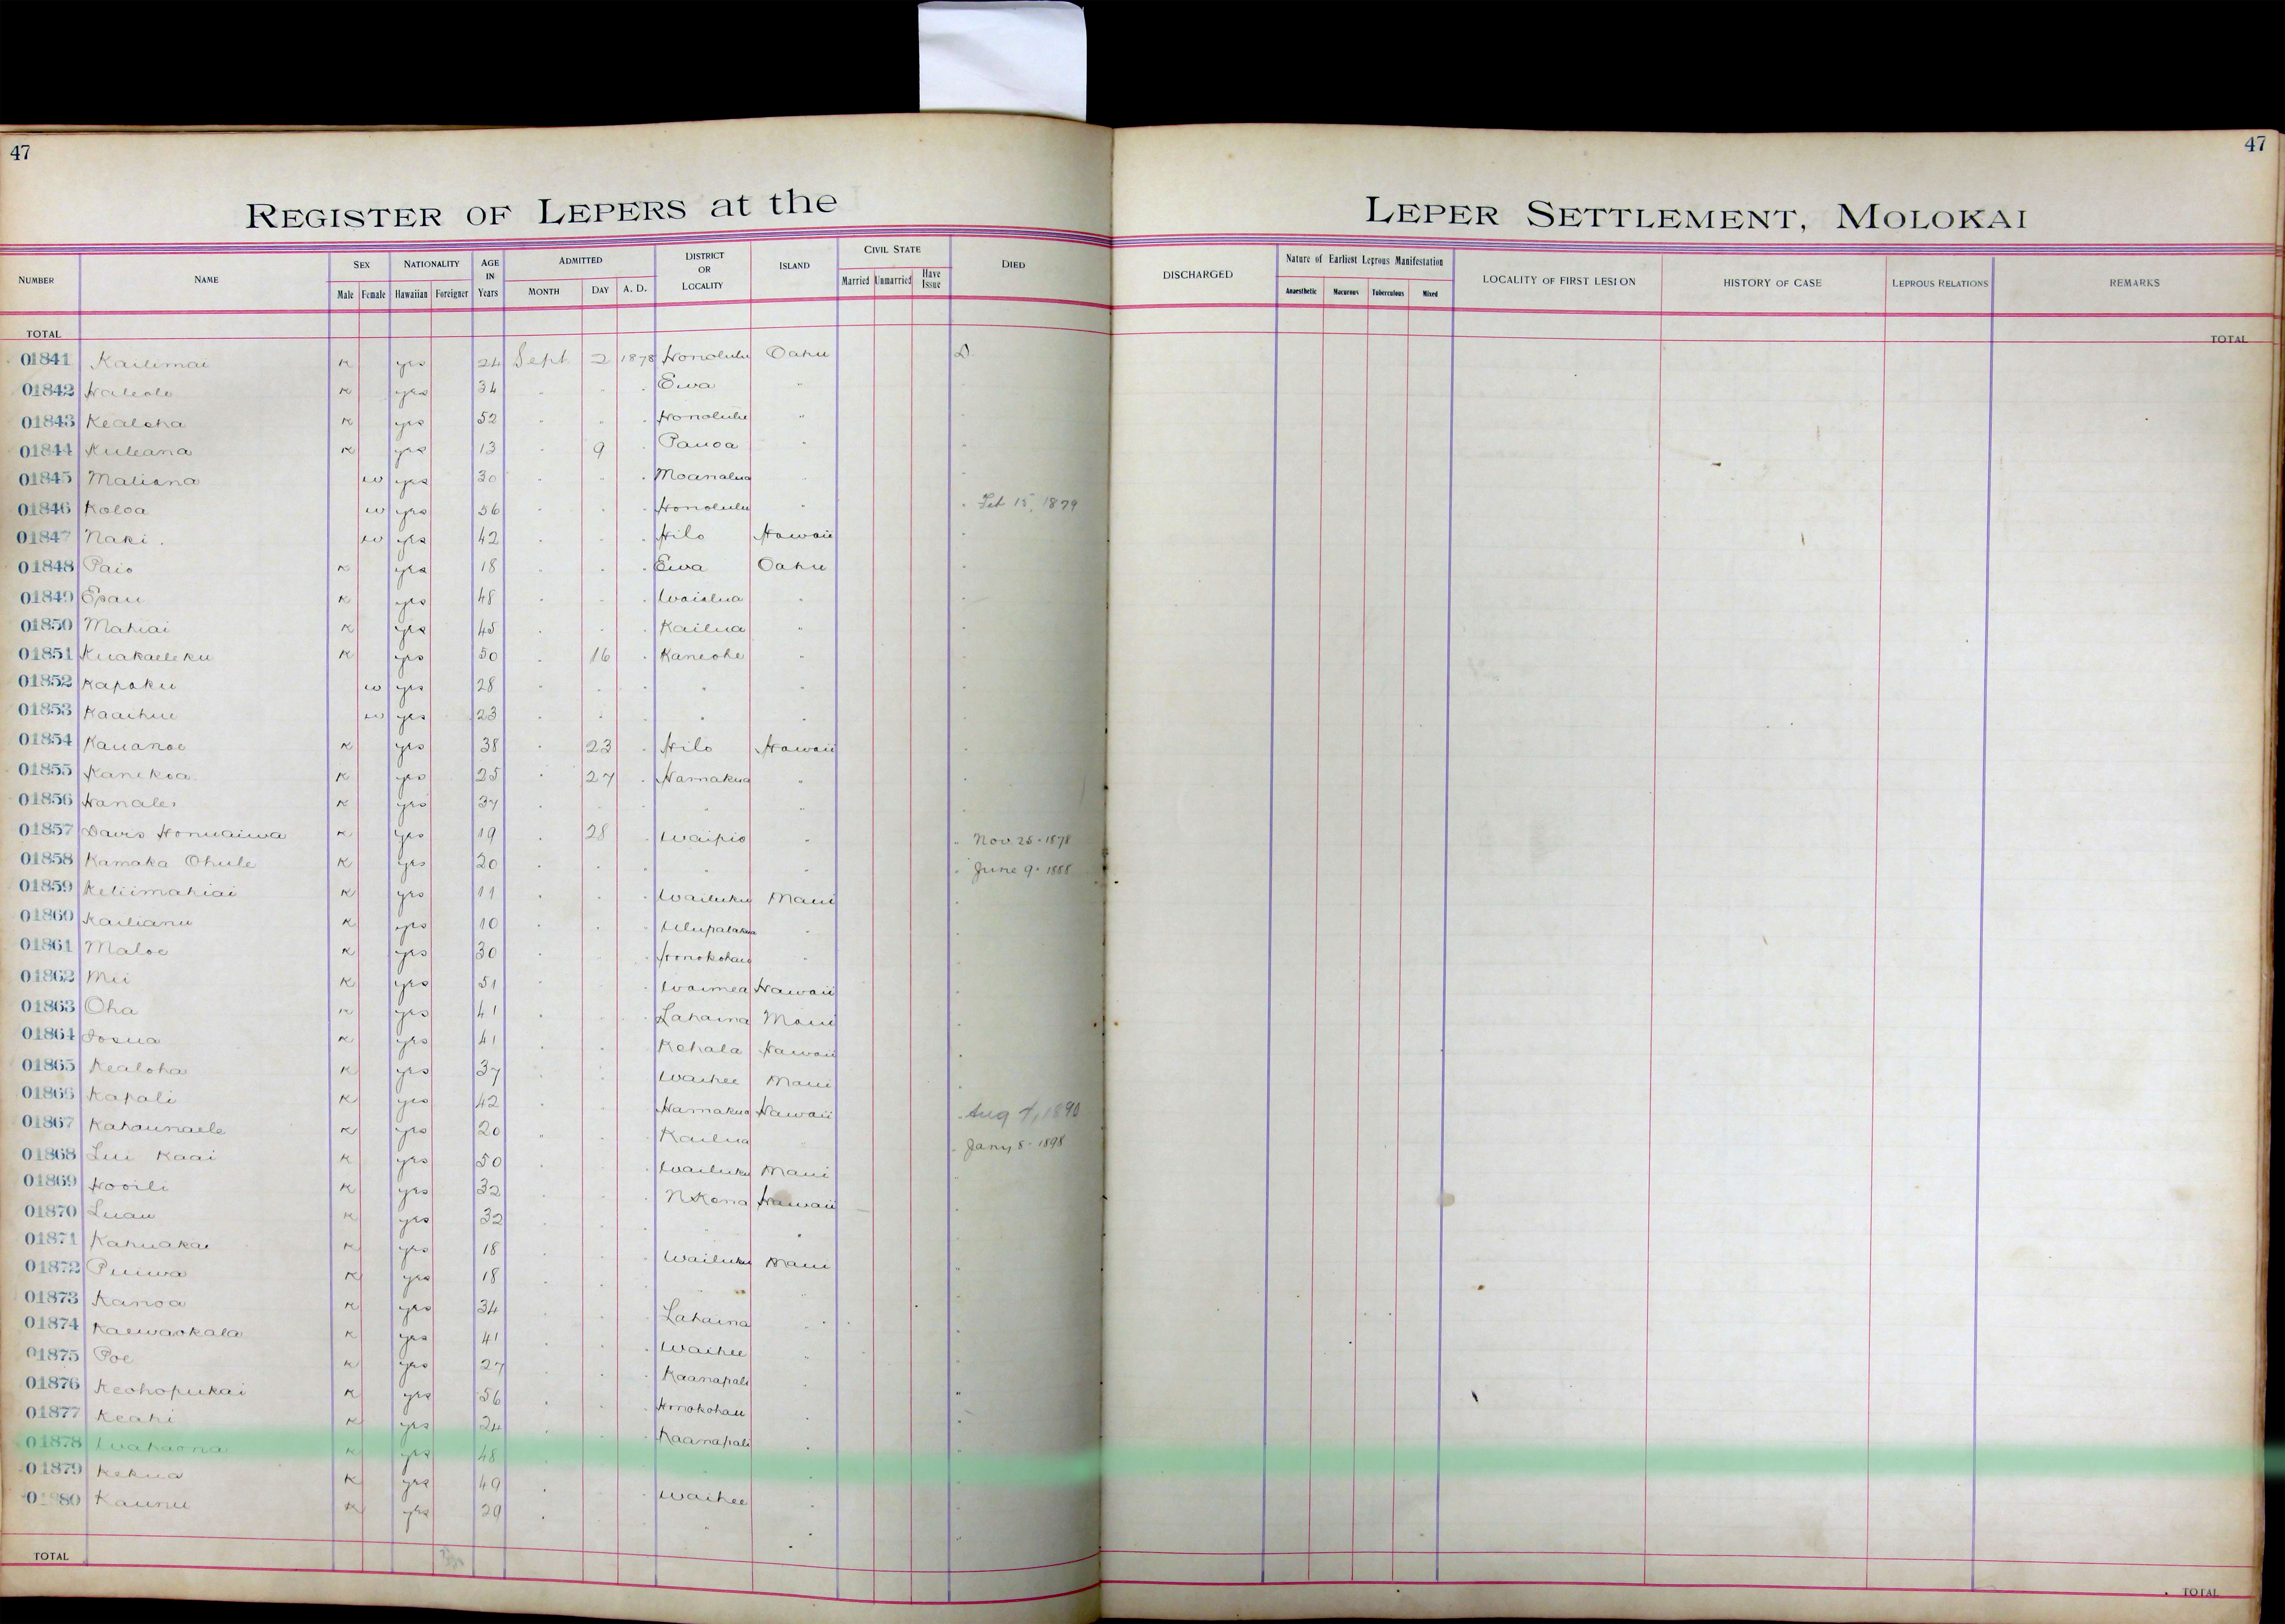 47
47
REGISTER OF LEPERS at the LEPER SETTLEMENT, MOLOKAI
NUMBER NAME SEX NATIONALITY AGE IN Years ADMITTED DISTRICT OR LOCALITY ISLAND CIVIL STATE DIED DISCHARGED Nature of Earliest Leprous Manifestation LOCALITY OF FIRST LESION HISTORY OF CASE LEPROUS RELATIONS REMARKS
Male Female Hawaiian Foreigner MONTH DAY A. D. Married Unmarried Have Issue Anaesthetic Macurous Tuberculous Mixed
TOTAL TOTAL
01841 Kailimai K yes 24 Sept 2 1878 Honolulu Oahu D
01842 Haleole K yes 34 " " " Ewa "
01843 Kealoha K yes 52 " " " Honolulu "
01844 Kuleana K yes 13 " 9 " Pauoa "
01845 Maliana w yes 30 " " " Moanalua "
01846 Koloa w yes 56 " " " Honolulu " " Feb 15, 1879
01847 Naki w yes 42 " " " Hilo Hawaii "
01848 Paio K yes 18 " " " Ewa Oahu "
01849 Epau K yes 48 " " " Waialua " "
01850 Mahiai K yes 45 " " " Kailua " "
01851 Kuakaeleku K yes 50 " 16 " Kaneohe " "
01852 Kapoku w yes 28 " " " " "
01853 Kaaihue w yes 23 " " " " "
01854 Kauanoe K yes 38 " 23 " Hilo Hawaii "
01855 Kanekoa K yes 25 " 27 " Hamakua " "
01856 Hanalei K yes 37 " " " " " "
01857 Davis Honuaiwa K yes 19 " 28 " Waipio " " Nov 25 - 1878
01858 Kamaka Ohule K yes 20 " " " " " " June 9 - 1888
01859 Keliimahiai K yes 11 " " " Wailuku Maui "
01860 Kailianu K yes 10 " " " Ulupalakua " "
01861 Maloe K yes 30 " " " Honokohau " "
01862 Mii K yes 51 " " " Waimea Hawaii "
01863 Oha K yes 41 " " " Lahaina Maui "
01864 Iosua K yes 41 " " " Kohala Hawaii "
01865 Kealoha K yes 37 " " " Waihee Maui "
01866 Kapali K yes 42 " " " Hamakua Hawaii " Aug 7, 1890
01867 Kahaunaele K yes 20 " " " Kailua " " Jany 8 - 1898
01868 Lui Kaai K yes 50 " " " Wailuku Maui "
01869 Hooili K yes 32 " " " N Kona Hawaii "
01870 Luau K yes 32 " " " " " "
01871 Kahuakai K yes 18 " " " Wailuku Maui "
01872 Puiwa K yes 18 " " " " " "
01873 Kanoa K yes 34 " " " Lahaina " "
01874 Kaewaokala K yes 41 " " " Waihee " "
01875 Poe K yes 27 " " " Kaanapali " "
01876 Keohopukai K yes 56 " " " Honokohau " "
01877 Keahi K yes 24 " " " Kaanapali " "
01878 Wahaona K yes 48 " " " "
01879 Kekua K yes 49 " " " Waihee " "
01880 Kaunu K yes 29 " " " "
TOTAL TOTAL